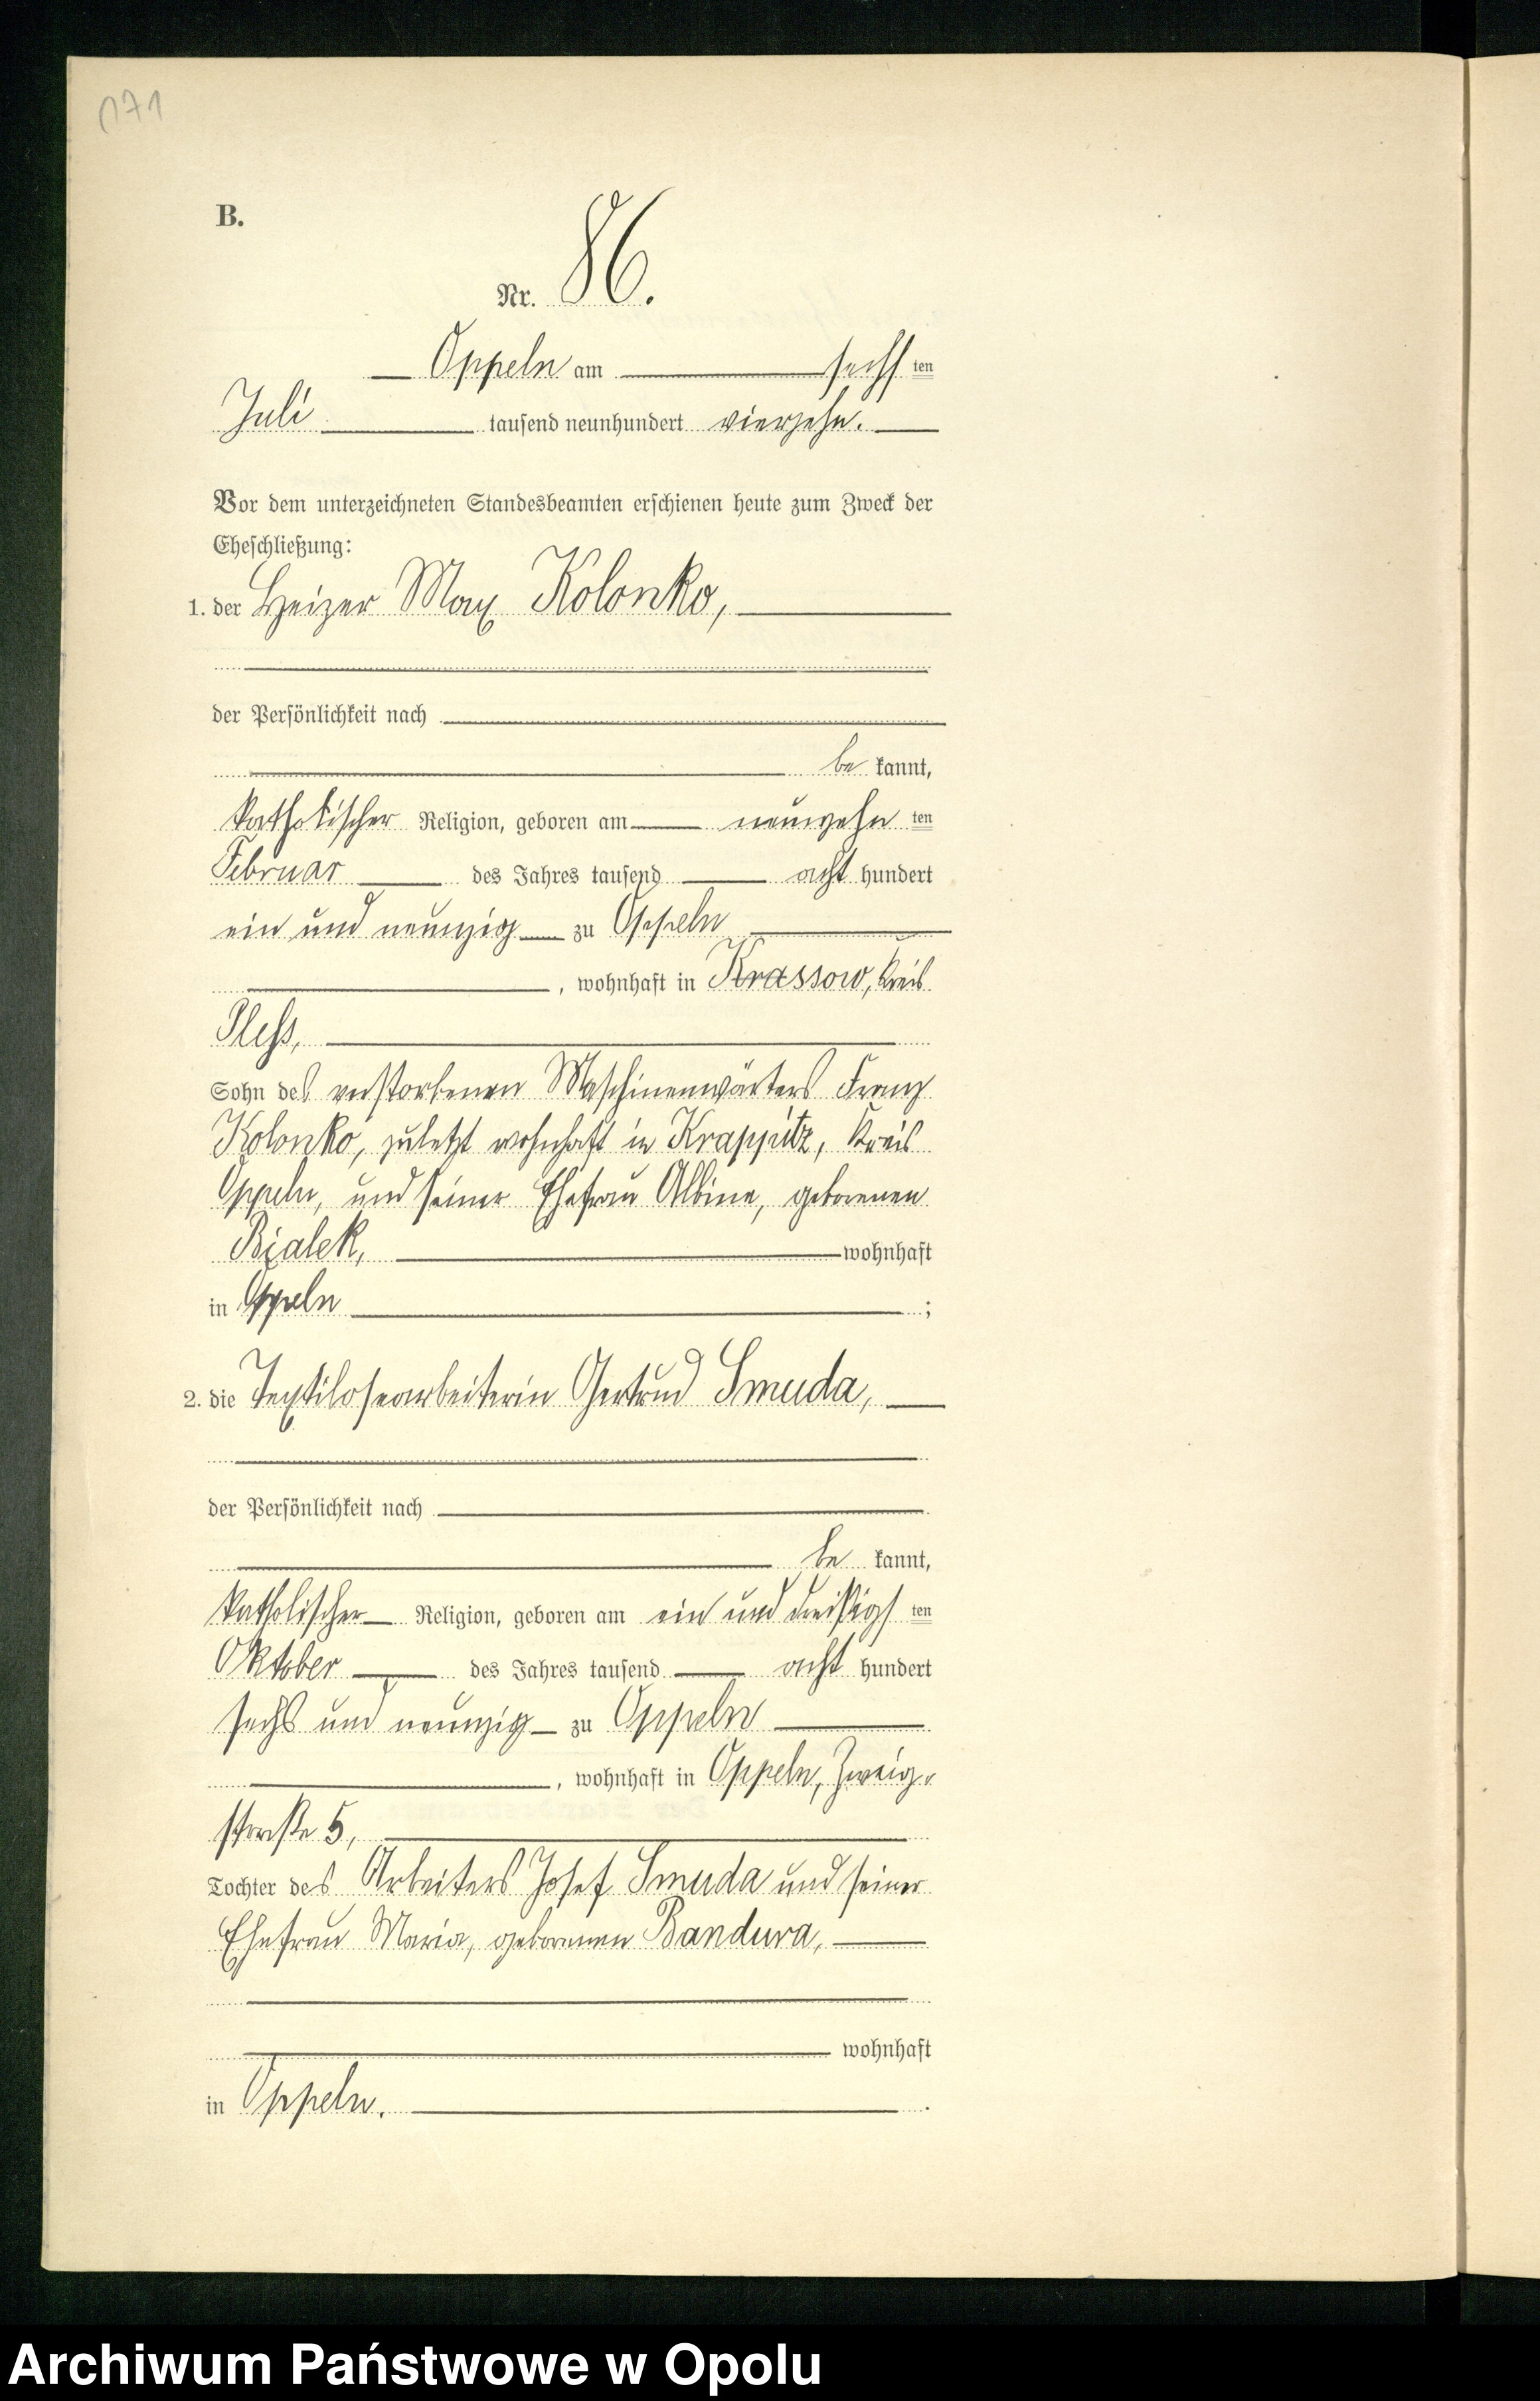 171
B.
Nr. 86.
Oppeln am sechsten
Juli tausend neunhundert vierzehn.
Vor dem unterzeichneten Standesbeamten erschienen heute zum Zweck der
Eheschließung:
1. der Heizer Max Kolonko,
der Persönlichkeit nach
be kannt,
katholischer Religion, geboren am neunzehn ten
Februar des Jahres tausend acht hundert
ein und neunzig zu Oppeln
, wohnhaft in Krassow, Kreis
Pleß,
Sohn des verstorbenen Maschinenwärters Franz
Kolonko, zuletzt wohnhaft in Krappitz, Kreis
Oppeln, und seiner Ehefrau Albine, geborenen
Bialek, wohnhaft
in Oppeln ;
2. die Textilosearbeiterin Gertrud Smuda,
der Persönlichkeit nach
be kannt,
katholischer Religion, geboren am ein und dreißigs ten
Oktober des Jahres tausend acht hundert
sechs und neunzig zu Oppeln
, wohnhaft in Oppeln, Zweig-
straße 5,
Tochter des Arbeiters Josef Smuda und seiner
Ehefrau Maria, geborenen Bandura,
wohnhaft
in Oppeln. .
Archiwum Państwowe w Opolu